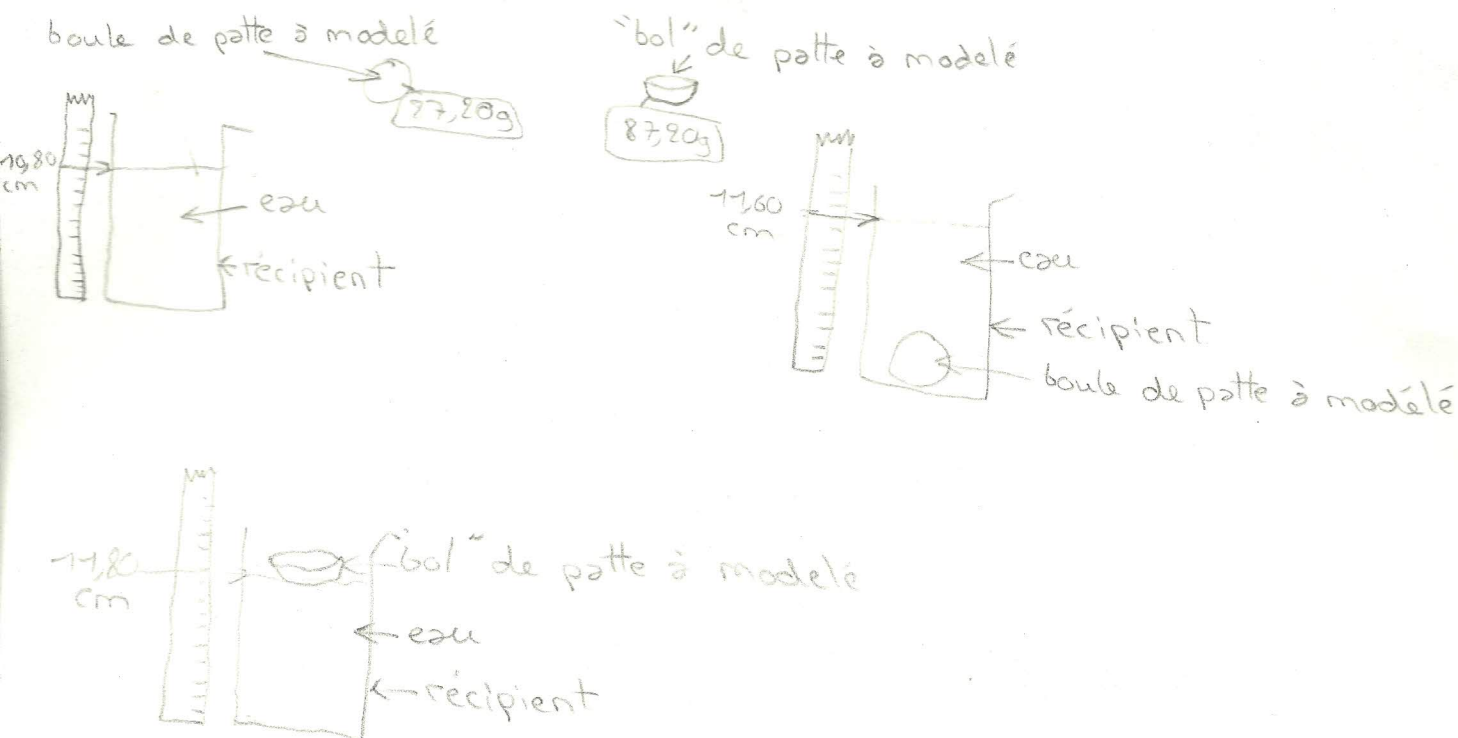 boule de patte à modelé
"bol" de patte à modelé
87,20g
10,80
cm
eau
récipient
11,60
cm
eau
récipient
boule de patte à modélé
11,80
cm
"bol" de patte à modelé
eau
récipient